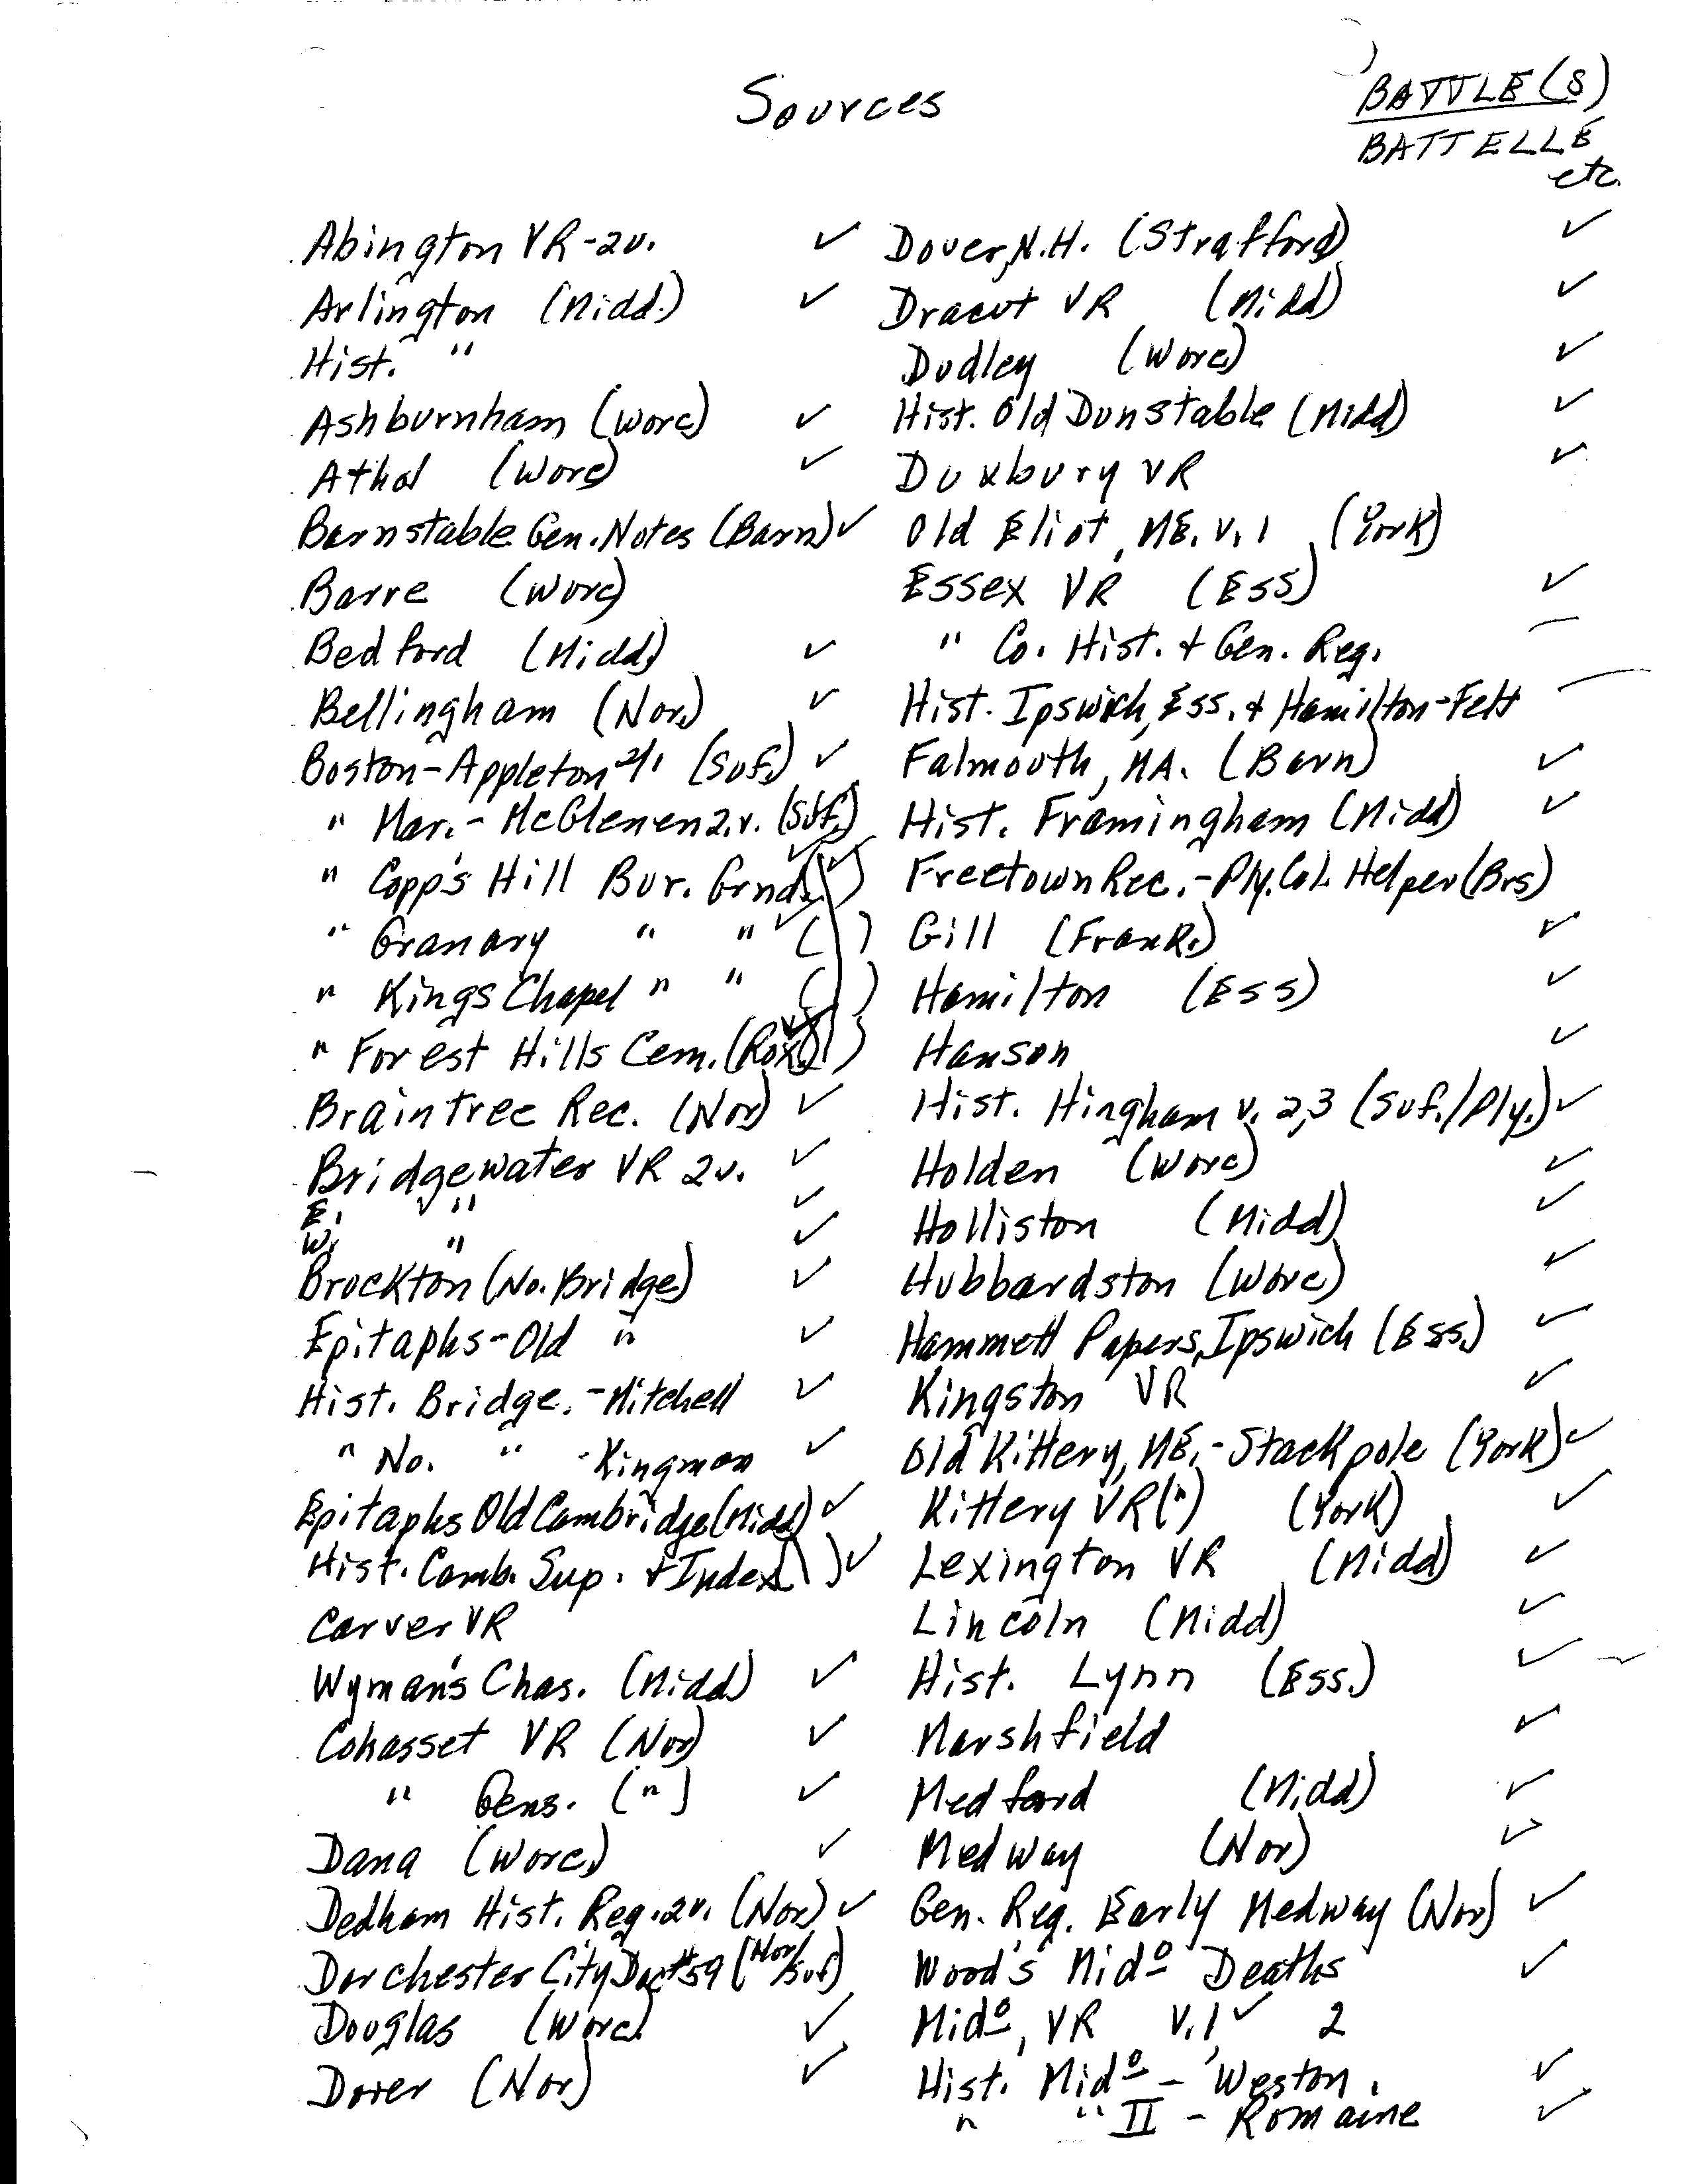 Sources
BATTLE(S)
BATTELLE
etc.
Abington VR-2v. ✓
Arlington (Midd.) ✓
Hist. "
Ashburnham (Worc) ✓
Athol (Worc) ✓
Barnstable Gen. Notes (Barn) ✓
Barre (Worc)
Bedford (Midd) ✓
Bellingham (Nor.) ✓
Boston-Appleton (Suf.) ✓
" Mar.-McGlenen 2.v. (Suf.)
" Copp's Hill Bur. Grnd. ✓
" Granary " " ✓ ( )
" Kings Chapel " " ( )
" Forest Hills Cem. (Rox.) ✓
Braintree Rec. (Nor) ✓
Bridgewater VR 2v. ✓
E. " ✓
W. " ✓
Brockton (No. Bridge) ✓
Epitaphs-Old " ✓
Hist. Bridge.-Mitchell ✓
" No. " -Kingman ✓
Epitaphs Old Cambridge (Midd) ✓
Hist. Camb. Sup. + Index ( ) ✓
Carver VR
Wyman's Chas. (Midd) ✓
Cohasset VR (Nor) ✓
" Gens. (") ✓
Dana (Worc.) ✓
Dedham Hist. Reg. 2v. (Nor) ✓
Dorchester City Doc #59 (Nor/Suf)
Douglas (Worc) ✓
Dover (Nor) ✓
Dover, N.H. (Strafford) ✓
Dracut VR (Midd) ✓
Dudley (Worc) ✓
Hist. Old Dunstable (Midd) ✓
Duxbury VR ✓
Old Eliot, ME. v.1 (York)
Essex VR (Ess) ✓
" Co. Hist. + Gen. Reg. —
Hist. Ipswich, Ess. + Hamilton-Felt —
Falmouth, MA. (Barn) ✓
Hist. Framingham (Midd) ✓
Freetown Rec.-Ply. Col. Helper (Brs)
Gill (Frank.) ✓
Hamilton (Ess) ✓
Hanson ✓
Hist. Hingham v. 2,3 (Suf./Ply.) ✓
Holden (Worc) ✓
Holliston (Midd) ✓
Hubbardston (Worc) ✓
Hammett Papers, Ipswich (Ess.) ✓
Kingston VR ✓
Old Kittery, ME.-Stackpole (York) ✓
Kittery VR (") (York) ✓
Lexington VR (Midd) ✓
Lincoln (Midd) ✓
Hist. Lynn (Ess.) ✓
Marshfield ✓
Medford (Midd) ✓
Medway (Nor) ✓
Gen. Reg. Early Medway (Nor) ✓
Wood's Midº Deaths ✓
Midº, VR v.1 ✓ 2
Hist. Midº - Weston. ✓
" " II - Romaine ✓